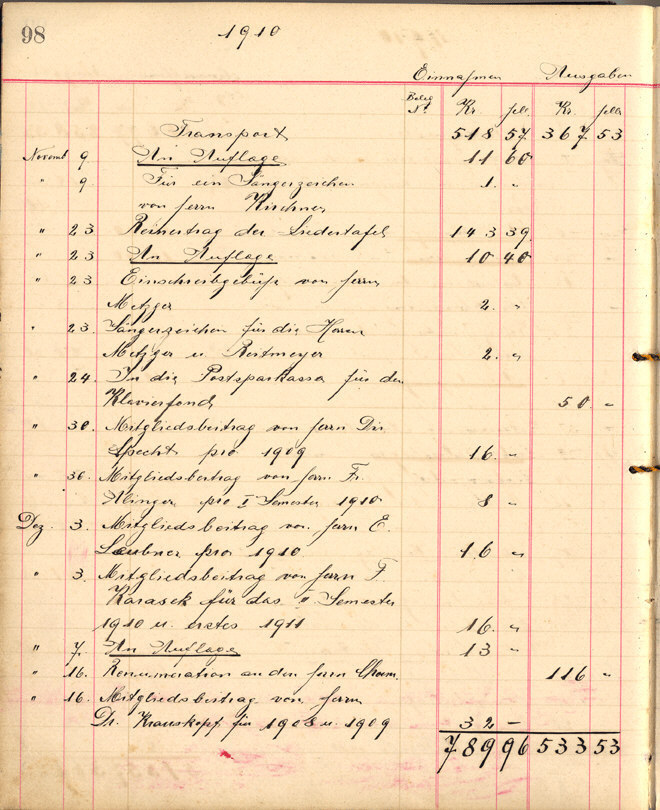 98
1910
Einnahmen Ausgaben
Beleg Nr. Kr. hell. Kr. hell.
Transport 518 57 367 53
Novemb 9 An Auflage 11 60
" 9 Für ein Sängerzeichen
von Herrn Kirchner 1. "
" 23 Reinertrag der Liedertafel 143 39
" 23 An Auflage 10 40
" 23 Einschreibgebühr von Herrn
Metzger 2. "
" 23. Sängerzeichen für die Herren
Metzger u. Restmeyer 2. "
" 24. In die Postsparkassa für den
Klavierfond 50. –
" 30. Mitgliedsbeitrag von Herrn Dir.
Specht pro 1909 16. –
" 30. Mitgliedsbeitrag von Herrn Fr.
pro I Semester 1910 8 –
Dez. 3. Mitgliedsbeitrag von Herrn E.
Laubner pro 1910 16 "
" 3. Mitgliedsbeitrag von Herrn F.
Karasek für das II Semester
1910 u. erstes 1911 16. "
" 7. An Auflage 13 –
" 16. Remuneration an den Herrn 116 "
" 16. Mitgliedsbeitrag von Herrn
Dr. Krauskopf für 1908 u. 1909 32 –
789 96 533 53